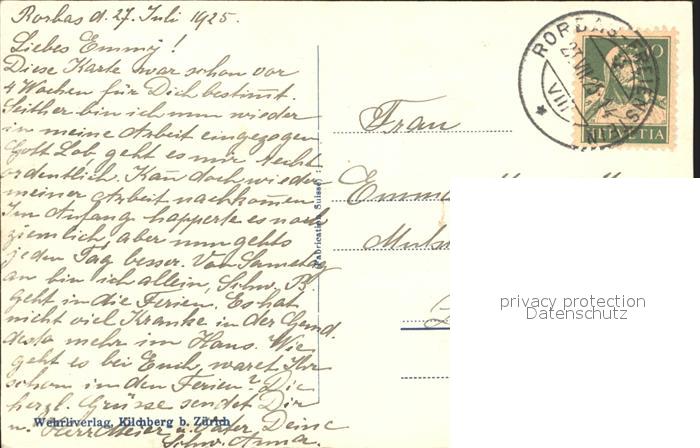 Rorbas d. 27. Juli 1925.
Liebes Emmy!
Diese Karte war schon vor
4 Wochen für Dich bestimt.
Seither bin ich nun wieder
in meine Arbeit eingezogen
Gott Lob, geht es mir recht
ordentlich. Kan doch wieder
meiner Arbeit nachkomen
Im Anfang happerte es noch
ziemlich, aber nun gehts
jeden Tag besser. Von Samstag
an bin ich allein, Schw. B.
geht in die Ferien. Es hat
nicht viel Kranke in der Gemd.
desto mehr im Haus. Wie
geht es bei Euch, waret Ihr
schon in den Ferien? Die
herzl. Grüsse sendet Dir
u. Herr Meier u. Vater, Deine
Schw. Anna.
Wehrliverlag, Kilchberg b. Zürich
Fabrication Suisse
Frau
RORBAS-FREIENSTEIN
27.VII.25
VIII
10
HELVETIA
privacy protection
Datenschutz